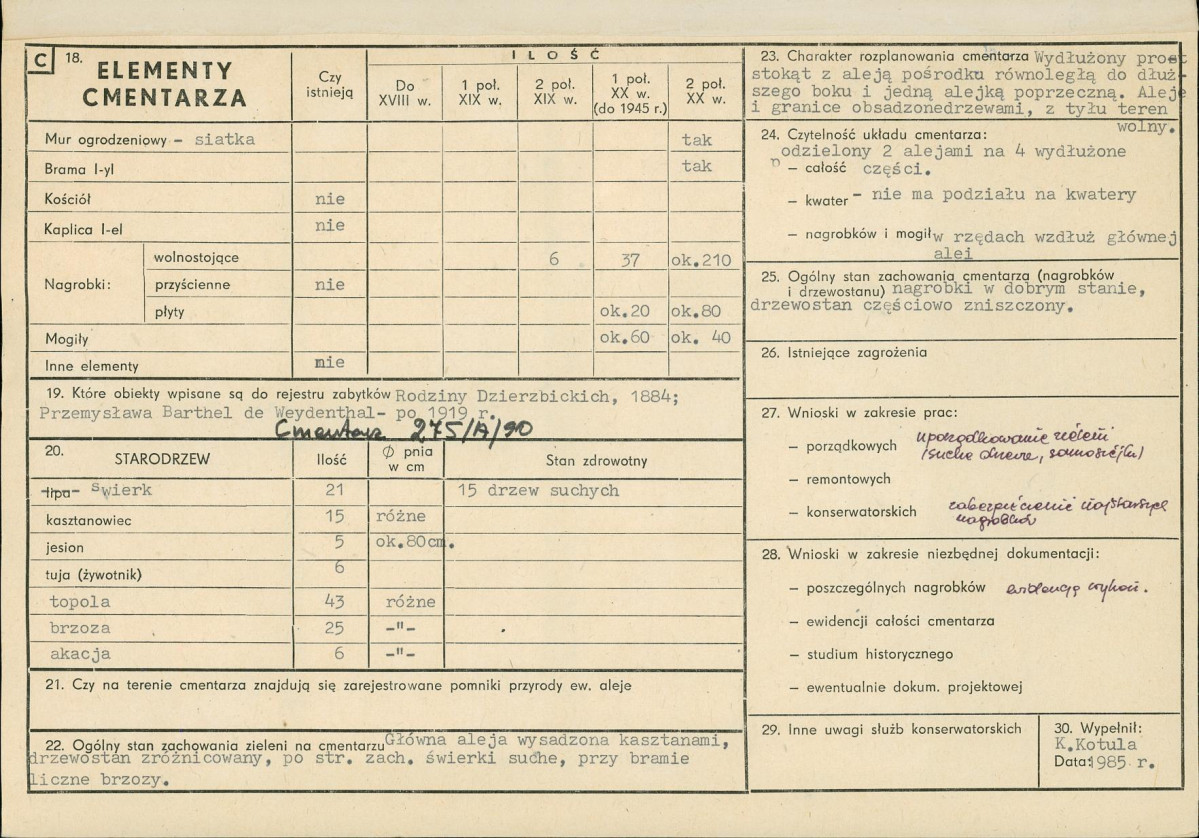 C 18. ELEMENTY CMENTARZA
Czy istnieją
I L O Ś Ć
Do XVIII w.
1 poł. XIX w.
2 poł. XIX w.
1 poł. XX w. (do 1945 r.)
2 poł. XX w.
Mur ogrodzeniowy - siatka tak
Brama I-yl tak
Kościół nie
Kaplica I-el nie
Nagrobki:
wolnostojące 6 37 ok.210
przyścienne nie
płyty ok.20 ok.80
Mogiły ok.60 ok. 40
Inne elementy nie
19. Które obiekty wpisane są do rejestru zabytków Rodziny Dzierzbickich, 1884;
Przemysława Barthel de Weydenthal- po 1919 r.
Cmentarz 275/A/90
20. STARODRZEW Ilość Ø pnia w cm Stan zdrowotny
lipa- świerk 21 15 drzew suchych
kasztanowiec 15 różne
jesion 5 ok.80cm.
tuja (żywotnik) 6
topola 43 różne
brzoza 25 -"-
akacja 6 -"-
21. Czy na terenie cmentarza znajdują się zarejestrowane pomniki przyrody ew. aleje
22. Ogólny stan zachowania zieleni na cmentarzu Główna aleja wysadzona kasztanami,
drzewostan zróżnicowany, po str. zach. świerki suche, przy bramie
liczne brzozy.
23. Charakter rozplanowania cmentarza Wydłużony prost
stokąt z aleją pośrodku równoległą do dłuż-
szego boku i jedną alejką poprzeczną. Aleje
i granice obsadzonedrzewami, z tyłu teren
wolny.
24. Czytelność układu cmentarza:
podzielony 2 alejami na 4 wydłużone
– całość części.
– kwater - nie ma podziału na kwatery
– nagrobków i mogił w rzędach wzdłuż głównej
alei
25. Ogólny stan zachowania cmentarza (nagrobków
i drzewostanu) nagrobki w dobrym stanie,
drzewostan częściowo zniszczony.
26. Istniejące zagrożenia
27. Wnioski w zakresie prac:
– porządkowych uporządkowanie zieleni
/suche drzewa, samosiejki/
– remontowych
– konserwatorskich zabezpieczenie najstarszych
nagrobków
28. Wnioski w zakresie niezbędnej dokumentacji:
– poszczególnych nagrobków ewidencję wykon.
– ewidencji całości cmentarza
– studium historycznego
– ewentualnie dokum. projektowej
29. Inne uwagi służb konserwatorskich
30. Wypełnił:
K.Kotula
Data: 1985 r.